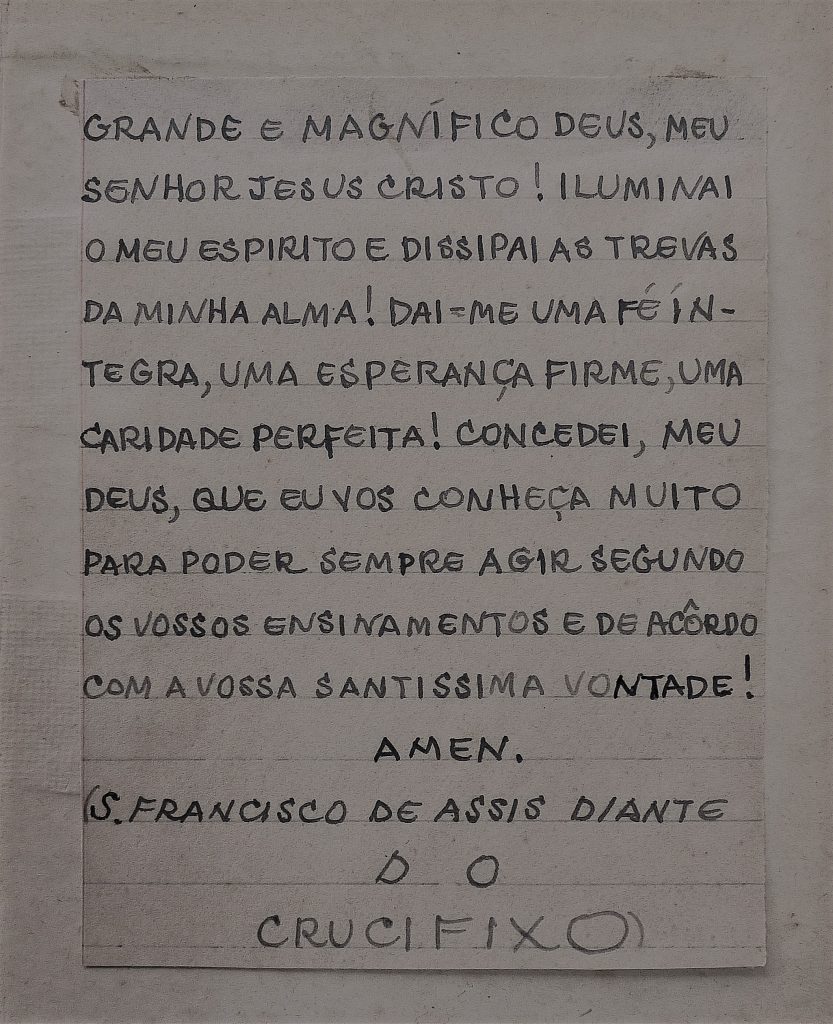 GRANDE E MAGNÍFICO DEUS, MEU
SENHOR JESUS CRISTO! ILUMINAI
O MEU ESPIRITO E DISSIPAI AS TREVAS
DA MINHA ALMA! DAI-ME UMA FÉ ÍN-
TEGRA, UMA ESPERANÇA FIRME, UMA
CARIDADE PERFEITA! CONCEDEI, MEU
DEUS, QUE EU VOS CONHEÇA MUITO
PARA PODER SEMPRE AGIR SEGUNDO
OS VOSSOS ENSINAMENTOS E DE ACÔRDO
COM A VOSSA SANTISSIMA VONTADE!
AMEN.
(S. FRANCISCO DE ASSIS DIANTE
D O
CRUCIFIXO)